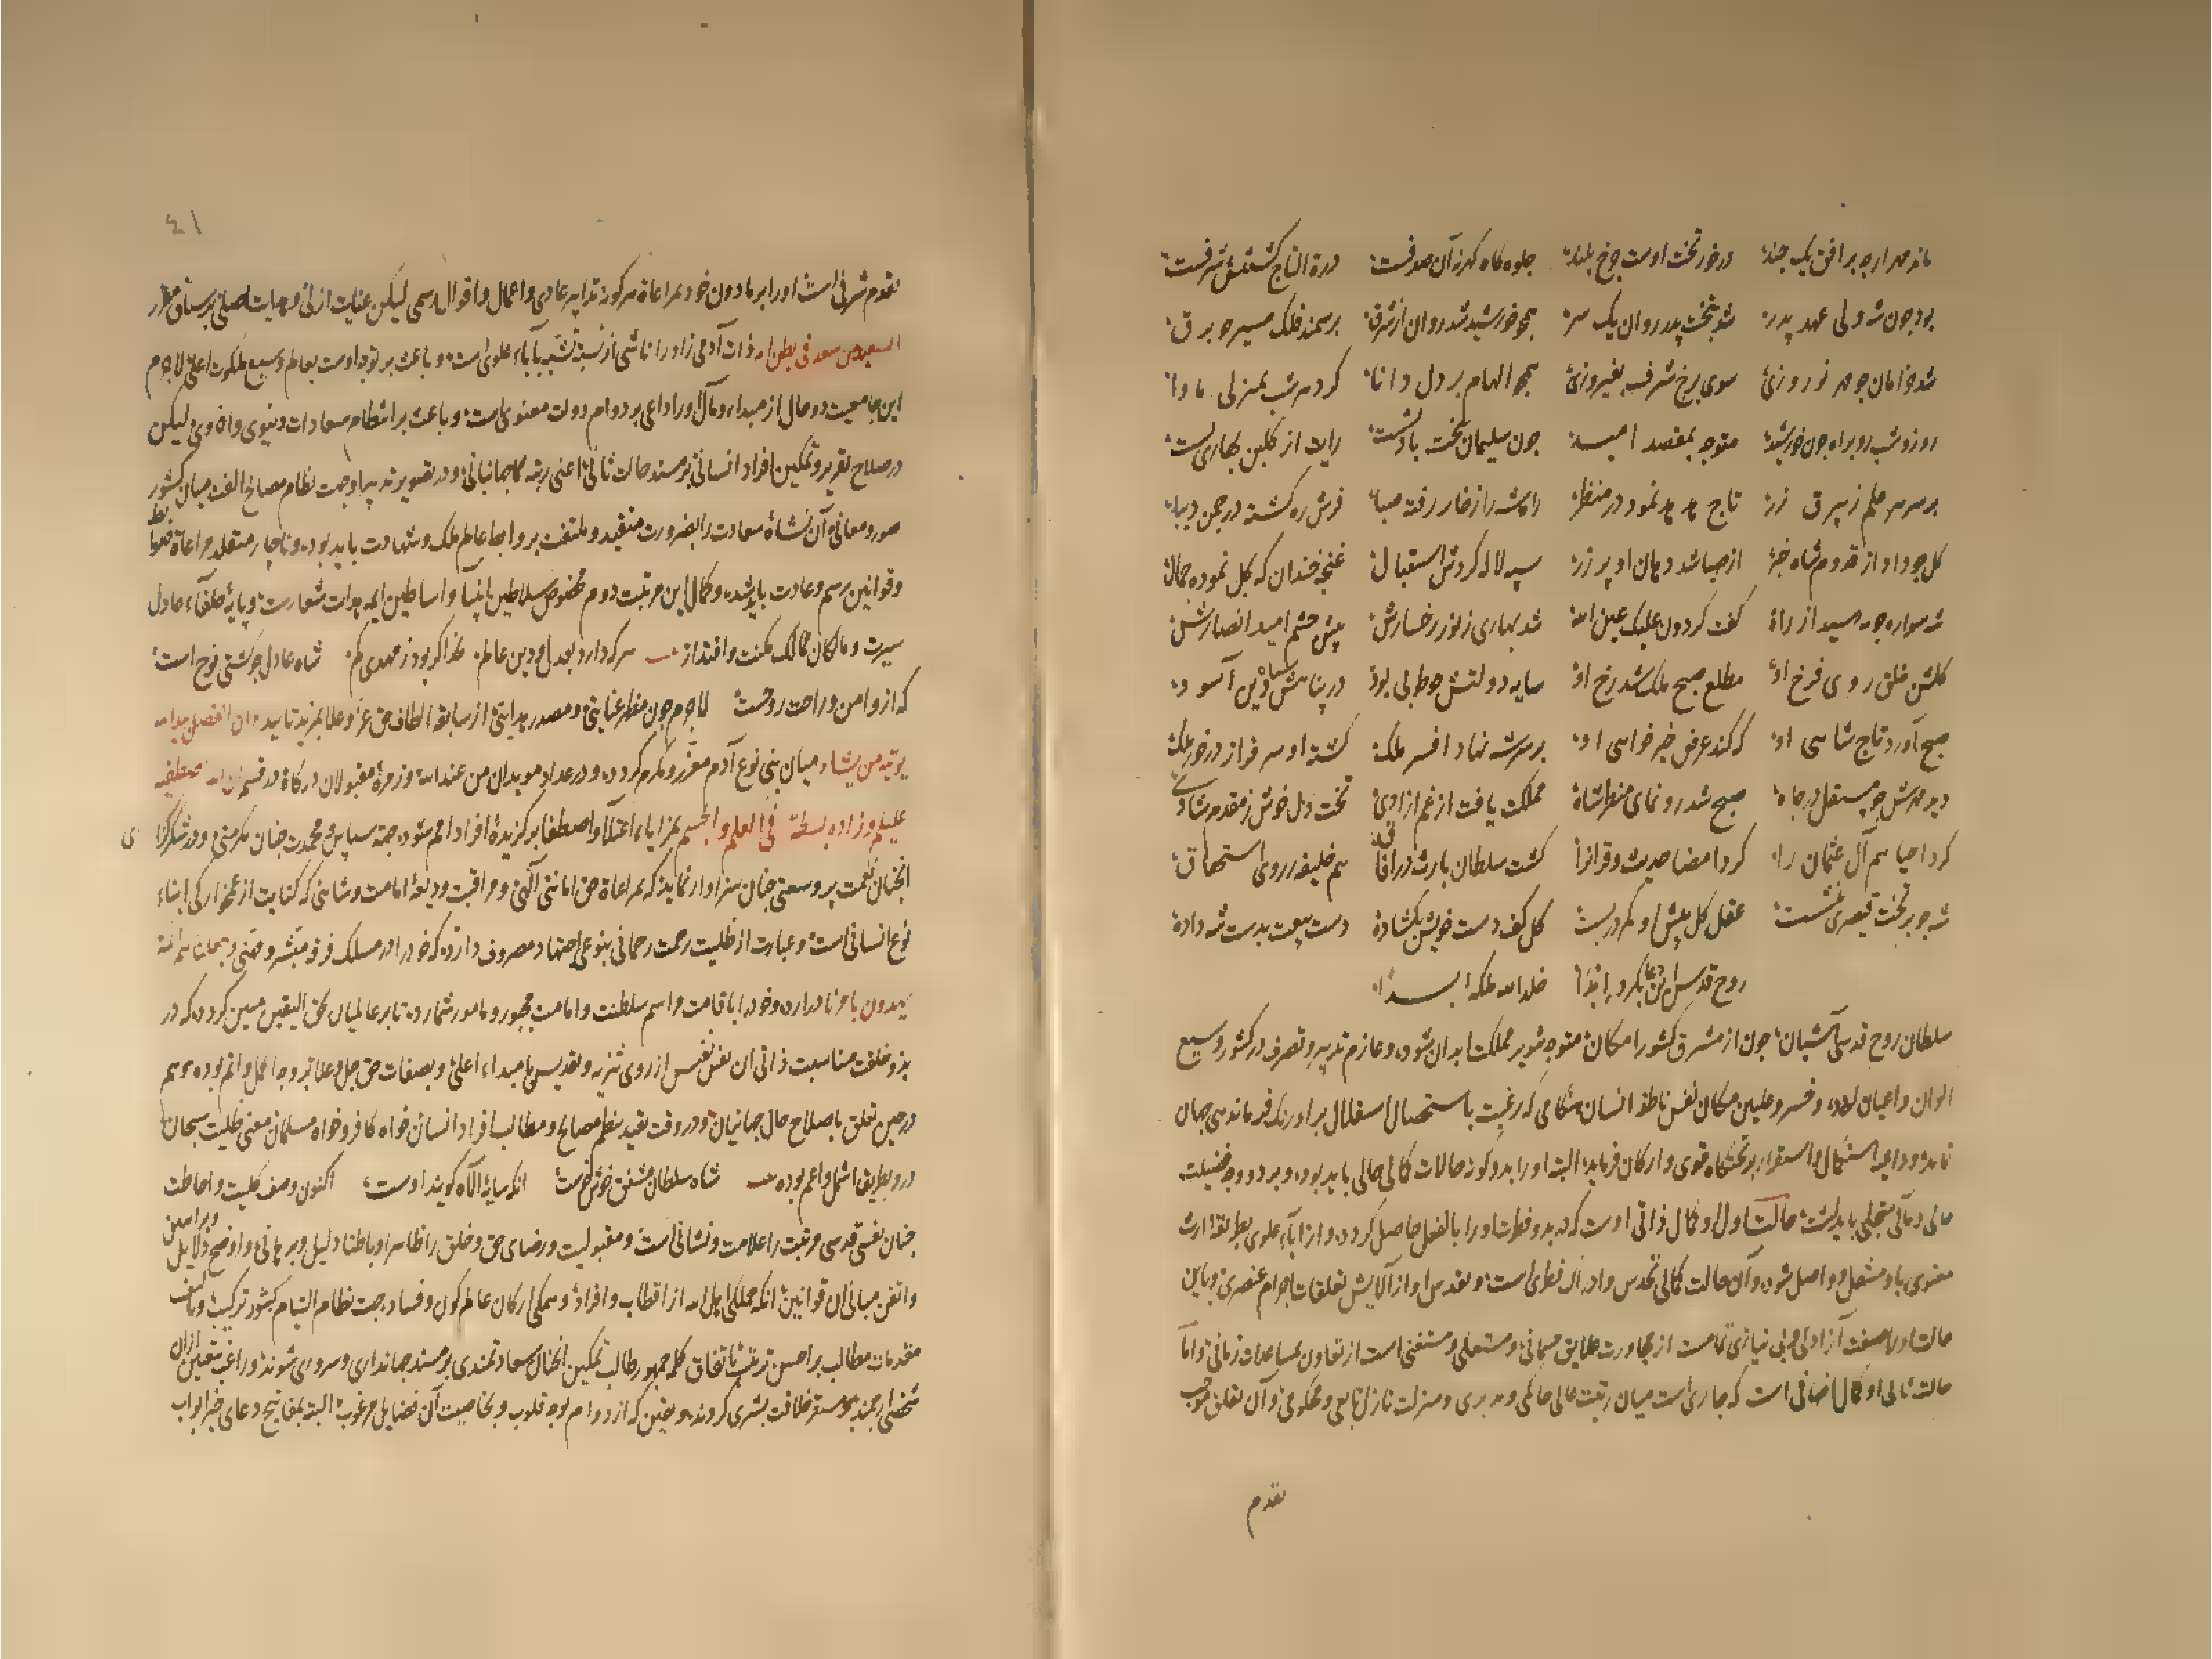 ماند مه ار چه بر افق یک چند در خور تخت اوست چرخ بلند جلوه گاه گهر نه آن صدفست درة التاج گشتنش شرفست
بود چون شه ولی عهد پدر شد بتخت پدر روان یک سر همچو خورشید شد روان از شرق بر سمند فلک مسیر چو برق
شد خرامان چو مهر نوروزی سوی برج شرف بفیروزی همچو الهام بر دل دانا کرد هر شب بمنزلی ماوا
روز و شب رو براه چون خورشید متوجه بمقصد امید چون سلیمان بتخت باد نشست رایت از گلبن بهاری بست
بر سر هر علم زبیرق زر تاج هدهد نمود در منظر راه شه را ز خار رفته صبا فرش ره گشته در چمن دیبا
گل چو داد از قدوم شاه خبر از صبا شد دهان او پر زر سپه لاله کردش استقبال غنچه خندان که گل نموده جمال
شه سواره چو میرسید از راه گفت گردون علیک عین الله شد بهاری ز نور رخسارش پیش چشم امید انصارش
گلشن خلق روی فرخ او مطلع صبح ملک شد رخ او سایه دولتش چو طوبی بود در پناهش سپاه دین آسود
صبح آورد تاج شاهی او که کند عرض خیر خواهی او بر سر شه نهاد افسر ملک گشته او سرفراز در خور ملک
دید مهرش چو مستقل در جاه صبح شد رونمای منظر شاه مملکت یافت از غم ازادی تخت دل خوش ز مقدم شادی
کرد احیا هم آل عثمان را کرد امضا حدیث و قرانرا گشت سلطان بارث در آفاق هم خلیفه ز روی استحقاق
شه چو بر تخت قیصری بنشست عقل کل پیش او کمر در بست گل کف دست خویش بگشاده دست بیعت بدست شه داده
روح قدس این دعا بکرد اندا خلد الله ملکه ابدا
سلطان روح قدسی آشیان چون از مشرق کشور امکان متوجه شهر مملکت ابدان شود و عازم تدبیر و تصرف در کشور وسیع
الوان و اعیان گردد و خسرو علیین مکان نفس ناطقه انسان هنگامی که رغبت باستحصال استقلال بر اورنک فرماندهی جهان
نماید و داعیه استکمال و استقرار بر تختگاه قوی و ارکان فرماید البته او را بدو گونه حالات کمالی حالی باید بود و بر دو وجه فضیلت
حالی و مآلی متجلی باید گشت حالت اول و کمال ذاتی اوست که در بدو فطرت او را بالفعل حاصل گردد و از اباء علوی بطریقه ارث
معنوی باو منتقل و واصل شود و آن حالت کمالی تجرد و ادراک فطری است و تقدس او از آلایش تعلقات اجرام عنصری و باین
حالت اولا صفت آزادی و بی نیازی تمامست از مجاورت علایق جسمانی و مستعلی و مستغنی است از تعاون مساعدات زمانی و اما
حالت ثانی او کمال اضافی است که جاریست میان رتبت عالی حاکمی و مدبری و منزلت نازل تابعی و محکومی و آن تعلق موجب
تقدم
٤١
تقدم شرفی است او را بر مادون خود بمراعاة هر گونه تدابیر عادی و اعمال و اقوال رسمی لیکن عنایت ازلی و هدایت اصلی بر سیاق مقرر
السعید من سعد فی بطن امه ذات آدمی زاد را ناشی از نسبت تشبه بآباء علوی است و باعث بر توجه اوست بعالم وسیع ملکوت اعلی لاجرم
این جامعیت دو حال از مبداء و مآل او را داعی بر دوام دولت معنوی است و باعث بر انتظام سعادات دنیوی و اخروی لیکن
در صلاح تقریر و تمکین افراد انسانی بر مسند حالت ثانی اعنی رتبه جهانبانی و در تقدیر تدبیر او جهت نظام مصالح الفت میان کشور
صور و معانی آن نشأة سعادت را بضرورت متقید و ملتفت بروابط عالم ملک و شهادت باید بود و ناچار متقلد مراعاة ضوابط
و قوانین رسم و عادت باید شد و کمال این مرتبت دوم مخصوص سلاطین انبیا و اساطین ایمه هدایت شعارست و پایه خلفاء عادل
سیرت و مالکان ممالک مکنت و اقتدار هر که دارد بعدل و دین عالم خدا گر بود ز مهدی کم شاه عادل چو کشتی نوح است
که ازو امن و راحت روحست لاجرم چون مظهر عنایتی و مصدر هدایتی از سابقه الطاف حق عز و علا بمزید تایید و ان الفضل بید الله
یوتیه من یشاء میان بنی نوع آدم معزز و مکرم گردد و در عداد مویدان من عند الله و زمرۀ مقبولان درگاه در قسم ان الله اصطفیه
علیکم و زاده بسطة فی العلم و الجسم بمزایاء اعتلا و اصطفا برگزیدۀ افراد امم شود جهة سپاس و محمدت چنان مکرمتی و در شکرگذاری
انچنان نعمت پر وسعتی چنان سزاوار نماید که بمراعاة حق امانتی آلهی و مراقبت ودیعۀ امامت و شاهی که کنایت از غمخوارگی ابناء
نوع انسانی است و عبارت از ظلیت رحمت رحمانی بنوعی اجتهاد مصروف دارد که خود را در مسلک فرقه مبشره و مهتدی و جعلناهم ائمة
یهدون بامرنا در آرد و خود را باقامت مراسم سلطنت و امامت مجبور و مامور شمارد تا بر عالمیان بحق الیقین مبین گردد که در
بدو خلقت مناسبت ذاتی ان نفس نفیس از روی تنزیه و تقدیس با مبداء اعلی و بصفات حق جل و علا بر وجه اکمل و اتم بوده و هم
در حین تعلق باصلاح حال جهانیان و در وقت تقید بنظم مصالح و مطالب افراد انسان خواه کافر و خواه مسلمان معنی ظلیت سبحان
درو بطریق اشمل و اعم بوده شاه سلطان مشفق خوش خوست انکه سایۀ الاه گویند اوست اکنون وصف کلیت و احاطت
چنان نفسی قدسی مرتبت را علامت و نشانی است و مقبولیت و رضای حق و خلق را ظاهرا و باطنا دلیل و برهانی و اوضح دلایل و براهین
و اتقن مبانی ان قوانین انکه جملگی اهل الله از اقطاب و افراد و همگی ارکان عالم کون و فساد جهت نظام التیام کشور ترکیب و تالیف
مقدمات مطالب بر احسن ترتیب باتفاق کلمه جمهور طالب تمکین انچنان سعادتمندی بر مسند جهانداری و سروری شوند و راغب تعیین ازان
شخصی ارجمند بر مستقر خلافت بشری گردند و یقین که از دوام توجه قلوب و بخاصیت آن فضایل مرغوب البته بمفاتیح دعای خیر ابواب